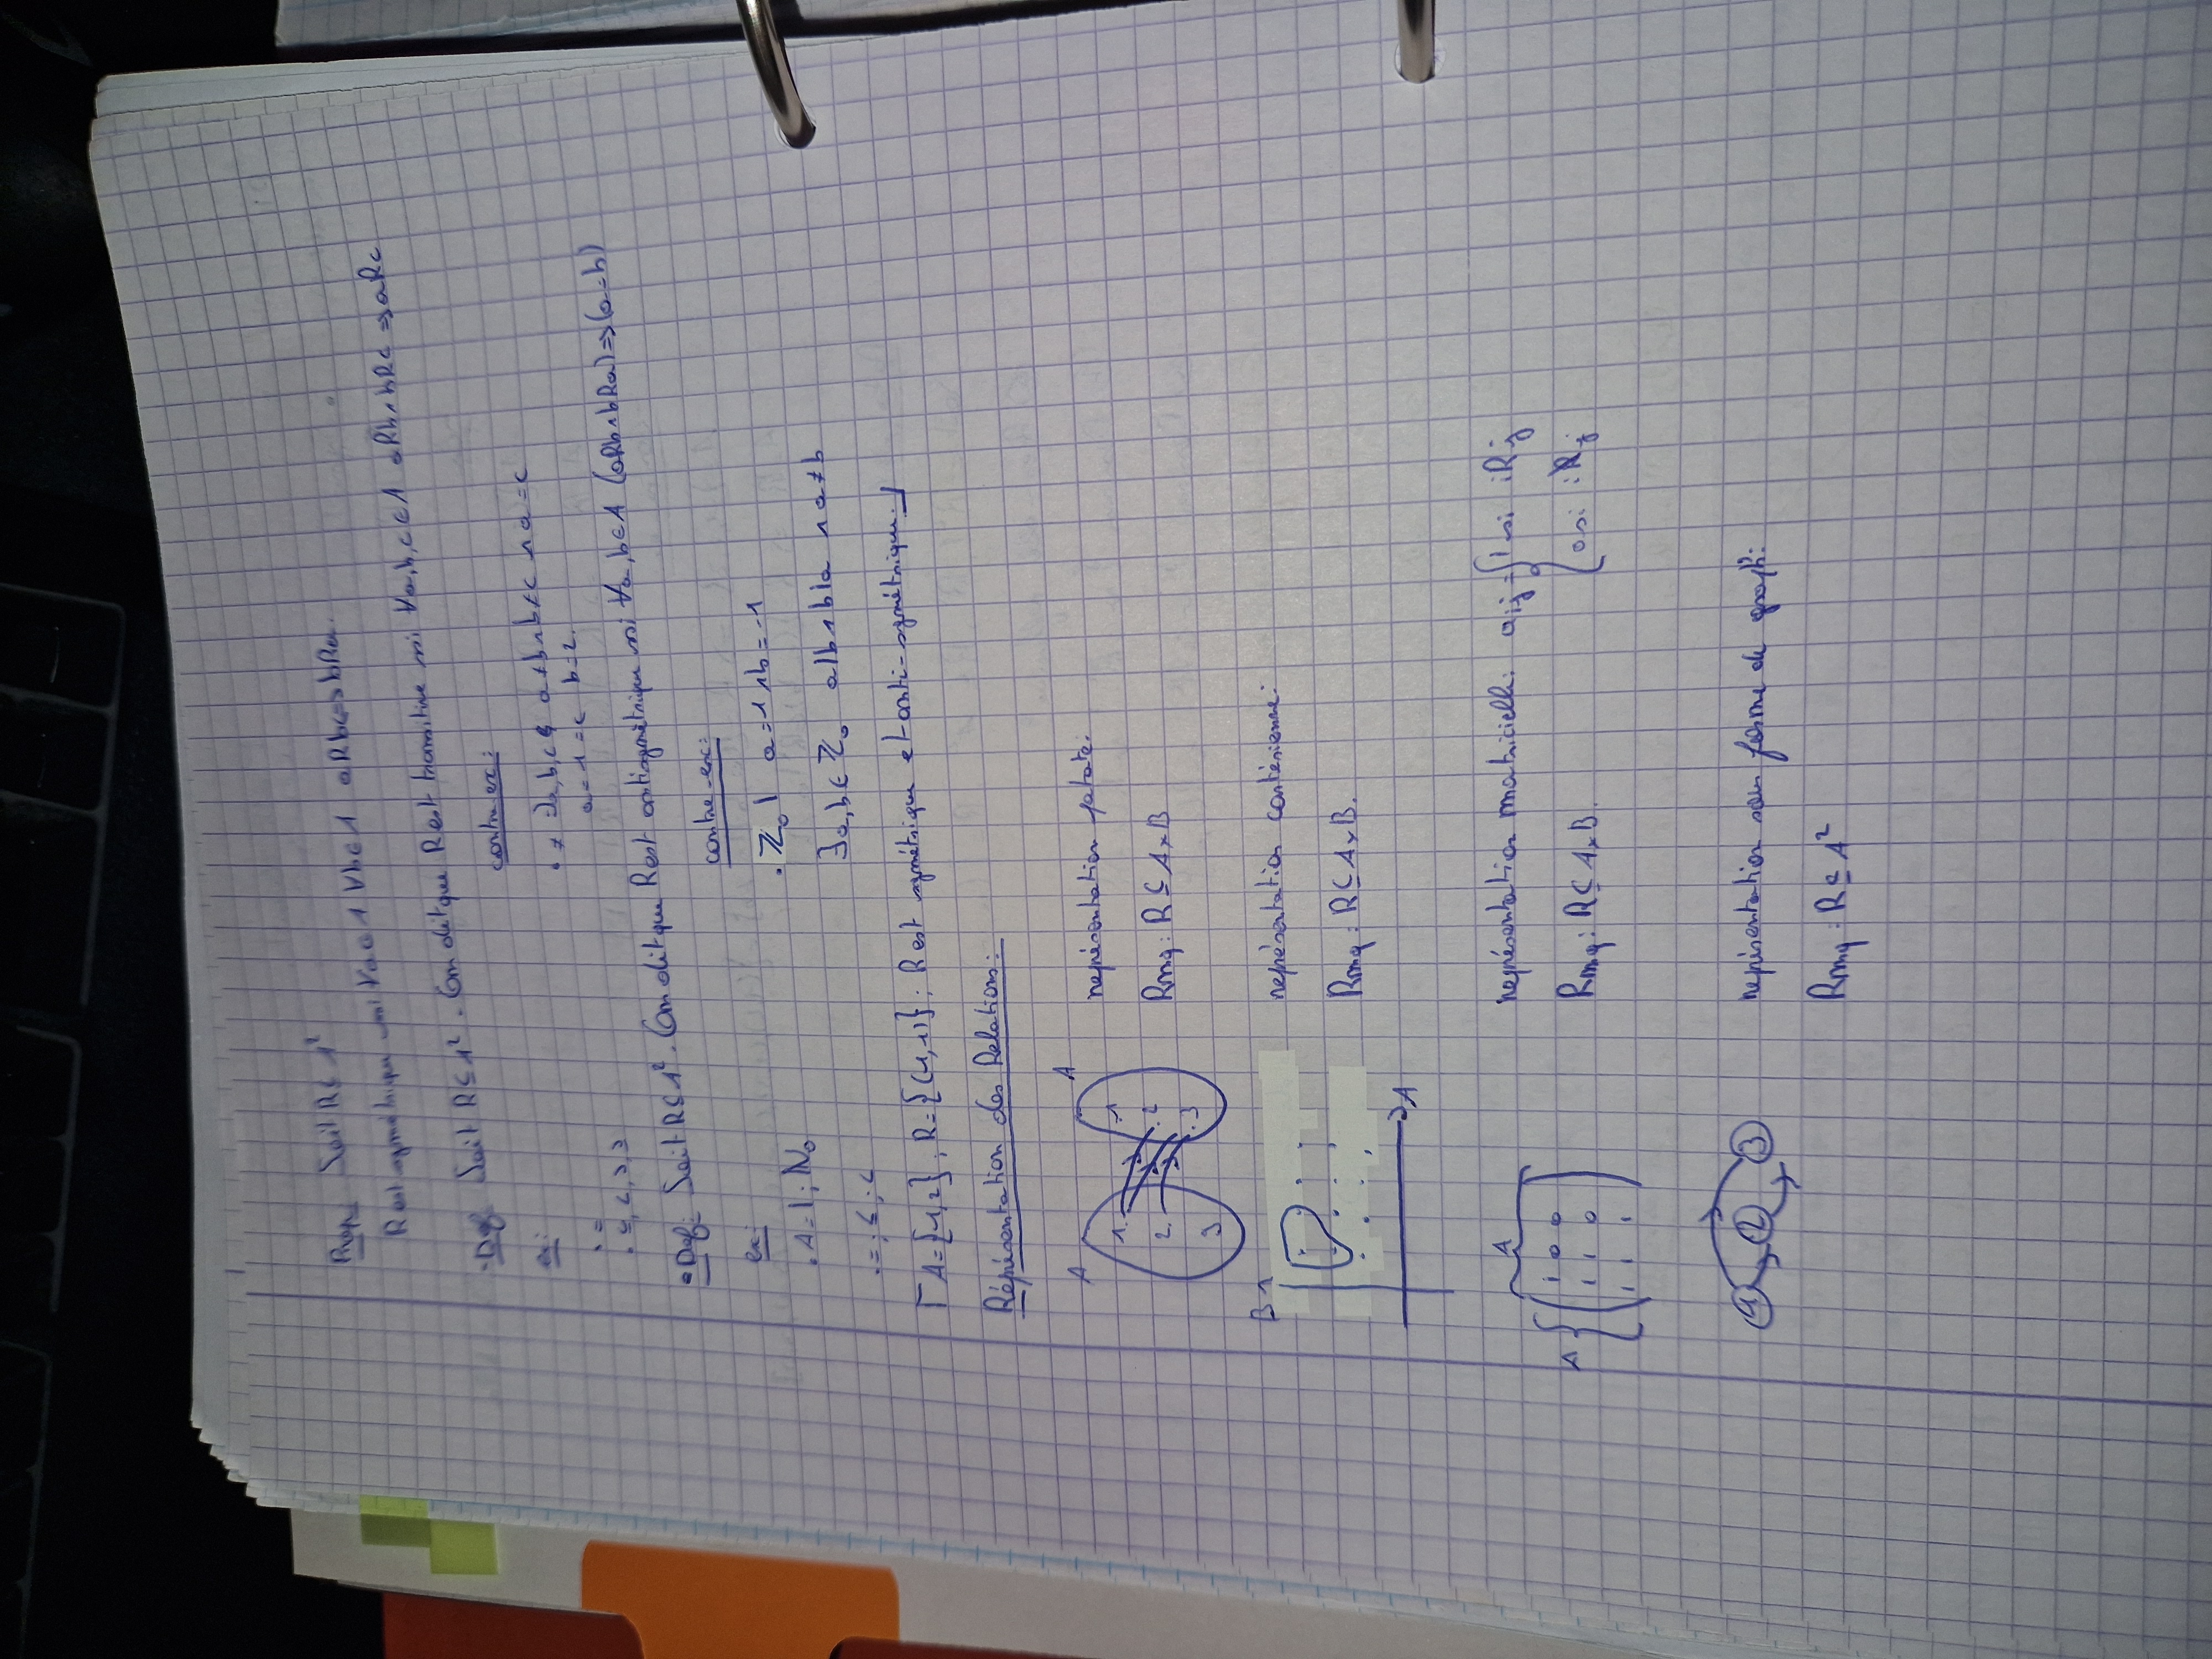 Prop: Soit R ⊆ A²
R est symétrique ssi ∀a ∈ A ∀b ∈ A aRb <=> bRa.
• Def: Soit R ⊆ A². On dit que R est transitive ssi ∀a, b, c ∈ A aRb ∧ bRc => aRc
ex: contre ex:
• = • ≠ ∃a, b, c a ≠ b ∧ b ≠ c ∧ a = c
• ≤, <, >, ≥ a = 1 = c b = 2.
• Def: Soit R ⊆ A². On dit que R est antisymétrique ssi ∀a, b ∈ A (aRb ∧ bRa) => (a = b)
ex: contre-ex:
. A = | ; N₀ . Z₀ | a = 1 ∧ b = -1
. = ; ≤ ; < ∃a, b ∈ Z₀ a|b ∧ b|a ∧ a ≠ b
⌈ A = {1, 2} ; R = {(1, 1)} ; R est symétrique et anti-symétrique. ⌋
Réprésentation des Relations:
A A
représentation patate:
1. .1
2. .2
3 .3
Rmq: R ⊆ A x B
B
représentation cartésienne:
Rmq: R ⊆ A x B.
A
A
représentation matricielle: aij = { 1 si iRj
A { ( 1 0 0
1 1 0
1 1 1 )
Rmq: R ⊆ A x B. 0 si iR̸j
1 2 3
représentation sous forme de graph:
Rmq: R ⊆ A²